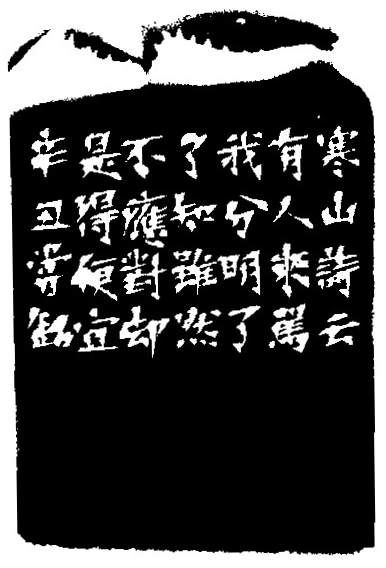 寒山詩云
有人來罵
我分明了
了知雖然
不應對却
是得便宜
辛丑